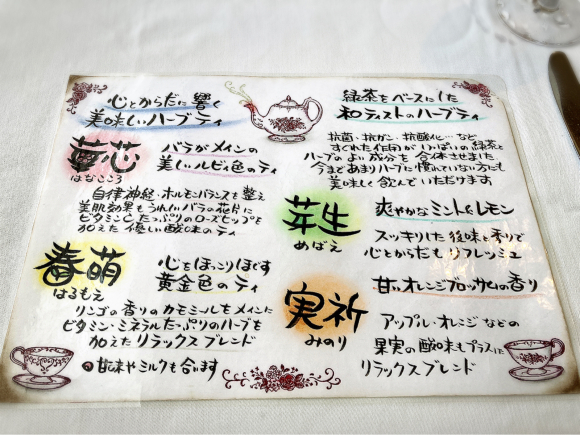 心とからだに響く
美味しいハーブティ
華芯
はなこころ
バラがメインの
美しいルビィ色のティ
自律神経・ホルモンバランスを整え
美肌効果もうれしいバラの花片に
ビタミンCたっぷりのローズヒップを
加えた優しい酸味のティ
春萌
はるもえ
心をほっこりほぐす
黄金色のティ
リンゴの香りのカモミールをメインに
ビタミン・ミネラルたっぷりのハーブを
加えたリラックスブレンド
甘味やミルクも合います
緑茶をベースにした
和テイストのハーブティ
抗菌・抗ガン・抗酸化…など
すぐれた作用がいっぱいの緑茶と
ハーブのよい成分を合体させました
今まであまりハーブに慣れていない方にも
美味しく飲んでいただけます
芽生
めばえ
爽やかなミント&レモン
スッキリした後味と香りで
心とからだもリフレッシュ
実祈
みのり
甘いオレンジブロッサムの香り
アップル・オレンジなどの
果実の酸味もプラスした
リラックスブレンド